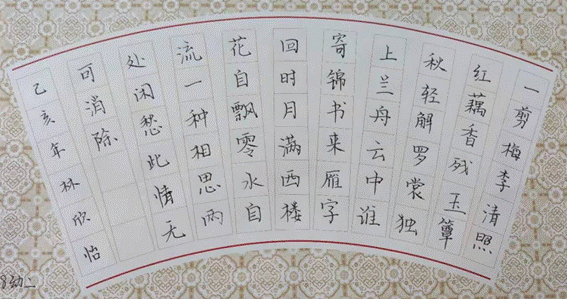 一剪梅李清照
红藕香残玉簟
秋轻解罗裳独
上兰舟云中谁
寄锦书来雁字
回时月满西楼
花自飘零水自
流一种相思两
处闲愁此情无
可消除
乙亥年林欣怡